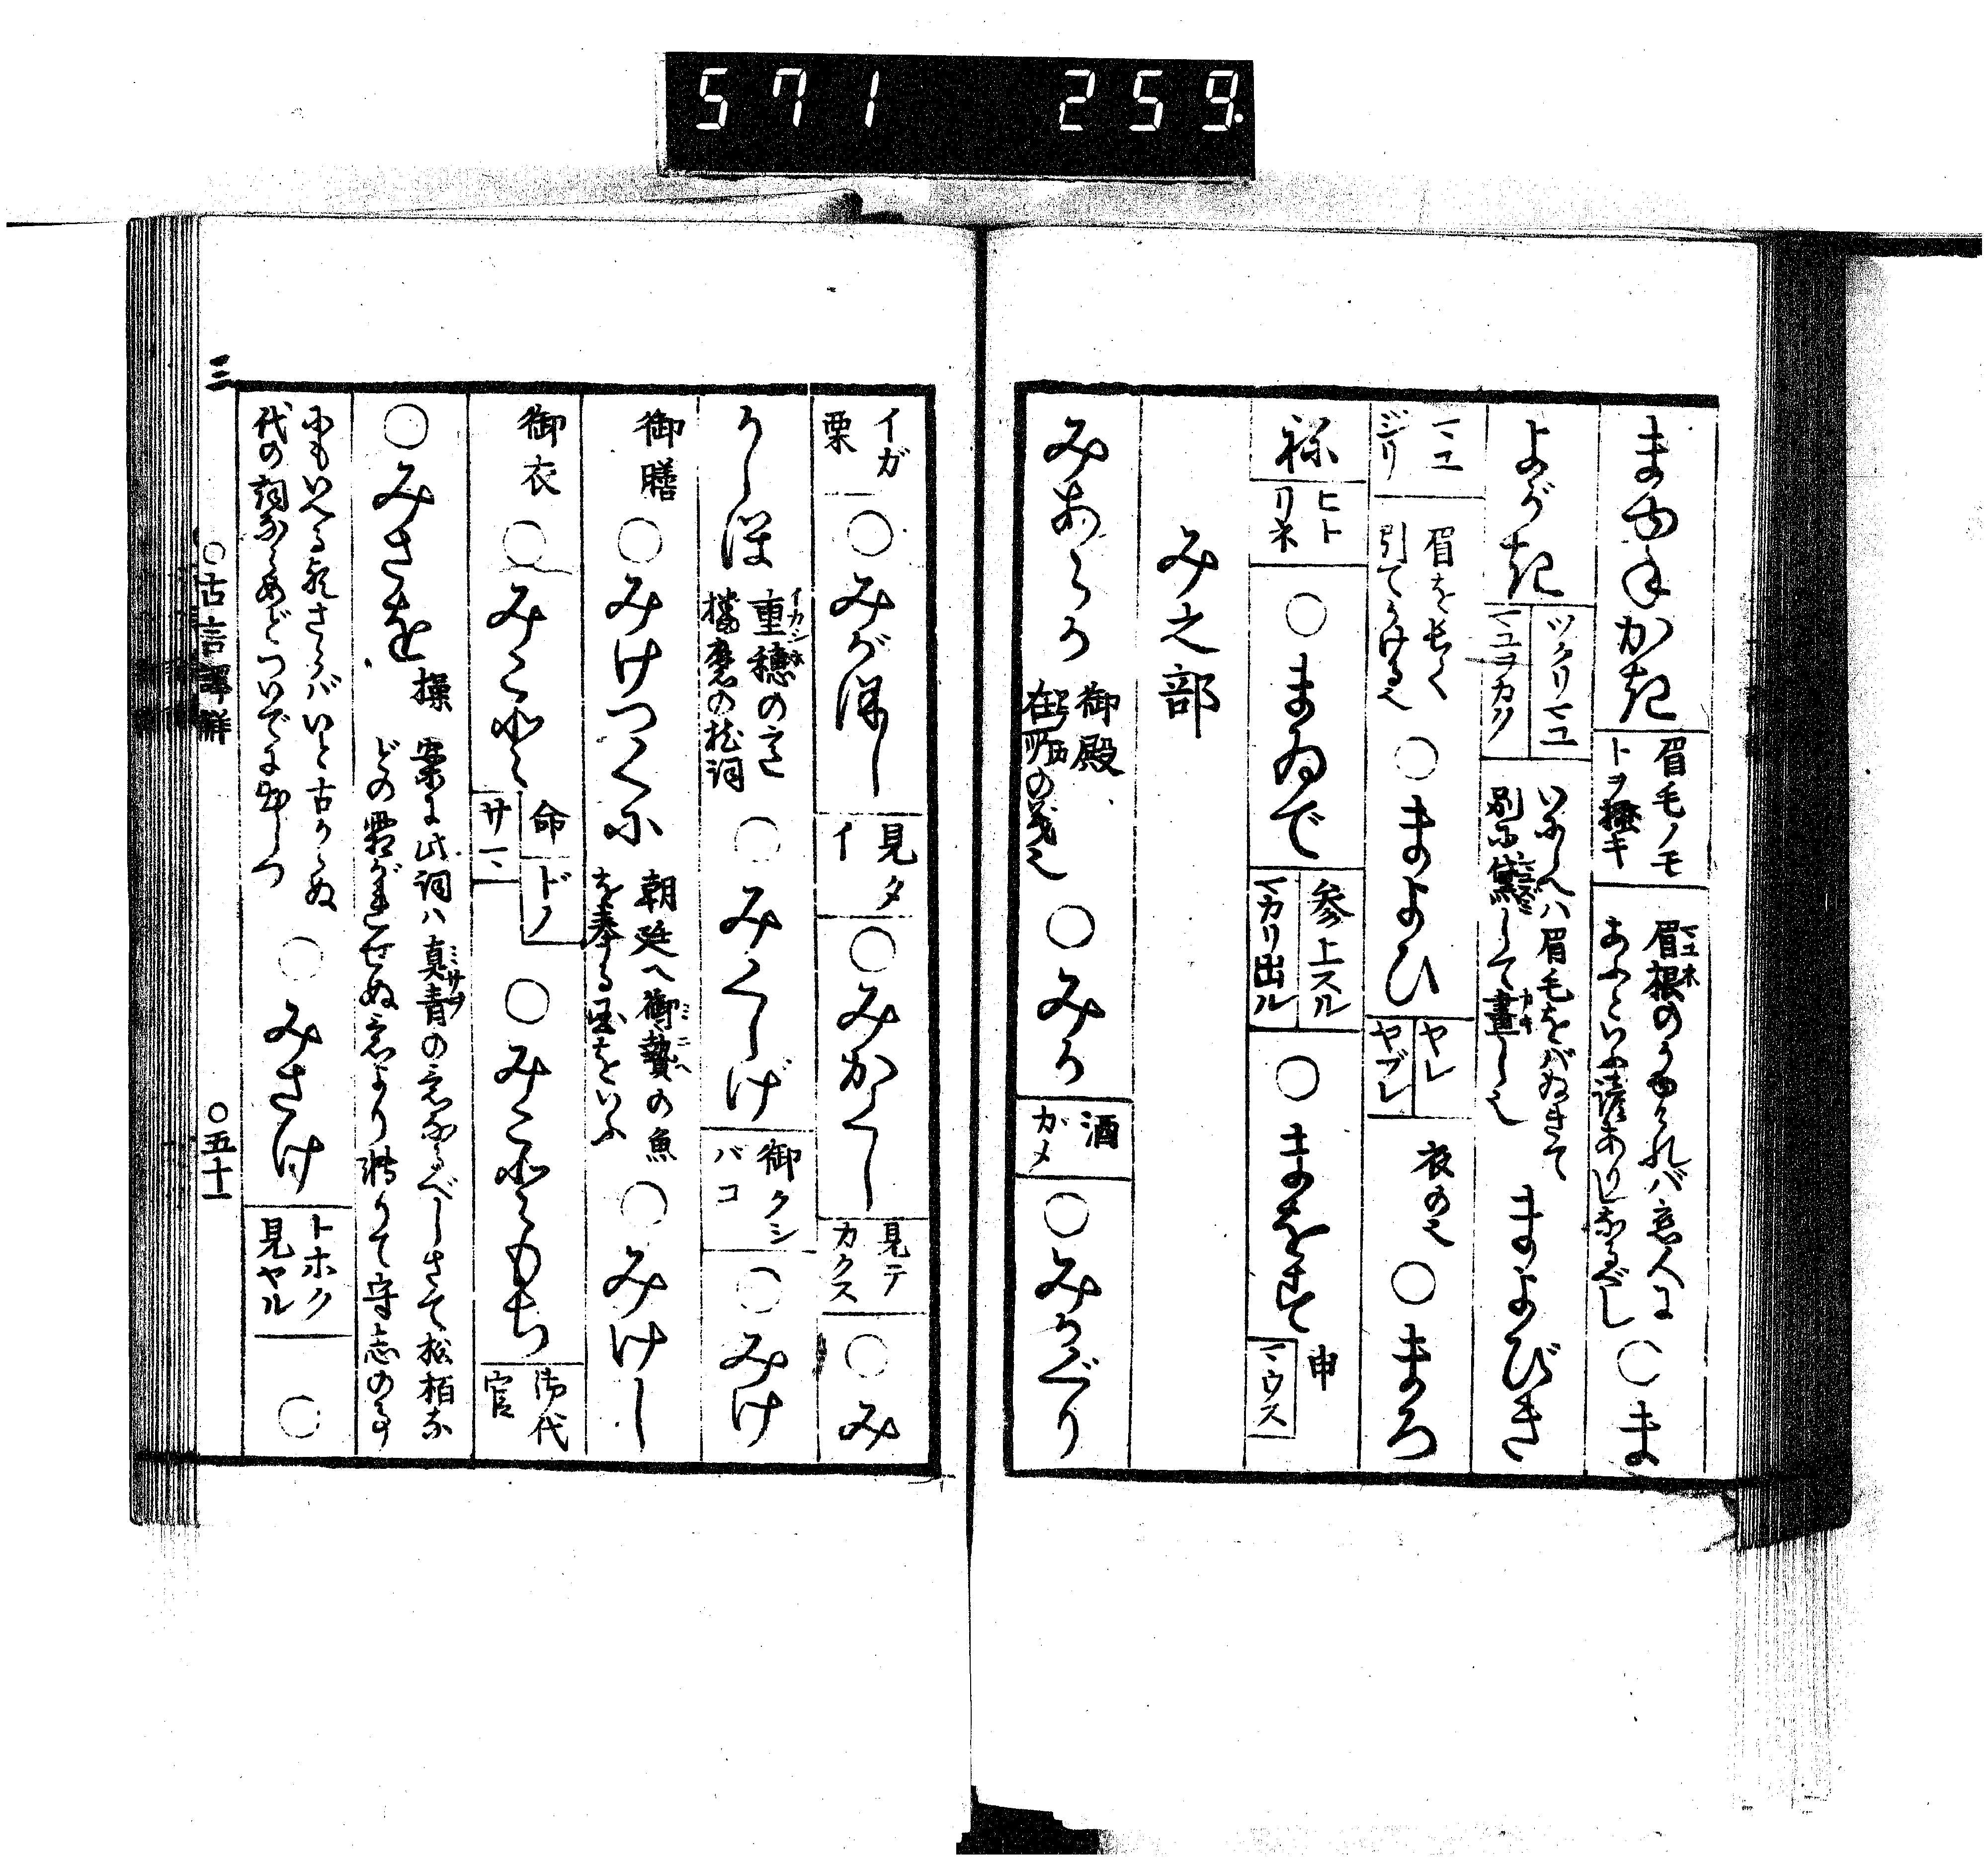 571 259
まゆねかき 眉毛ノモトヲ掻キ 眉根のかゆければ恋人にあふといふ諺ありしなるべし ○ま
よがき ツクリマユ マユヲカク いにしへハ眉毛をバぬきて別に黛して畫し也 まよびき
マユジリ 眉を長く引てかける也 ○まよひ ヤレ ヤブレ 衣の也 ○まろ
ね ヒトリネ ○まゐで 参上スル マカリ出ル ○まをす 申 マウス
み之部
みあらか 御殿 在所の義也 ○みか 酒ガメ ○みかぐり
イガ栗 ○みがほし 見タイ ○みかくし 見テカクス ○み
かしほ 重穂の意 播磨の枕詞 ○みくしげ 御クシバコ ○みけ
御膳 ○みけつくに 朝廷へ御贄の魚を奉る国をいふ ○みけし
御衣 ○みこと 命 ドノ サマ ○みこともち 御代官
○みさを 操 案に此詞ハ真青の意なるべしさて松柏などの霜がれせぬ意より轉りて守志の事
にもいへる歟さらバいと古からぬ代の詞ならめどついでに出しつ ○みさけ トホク見ヤル ○
三 ○古言譯解 ○五十一